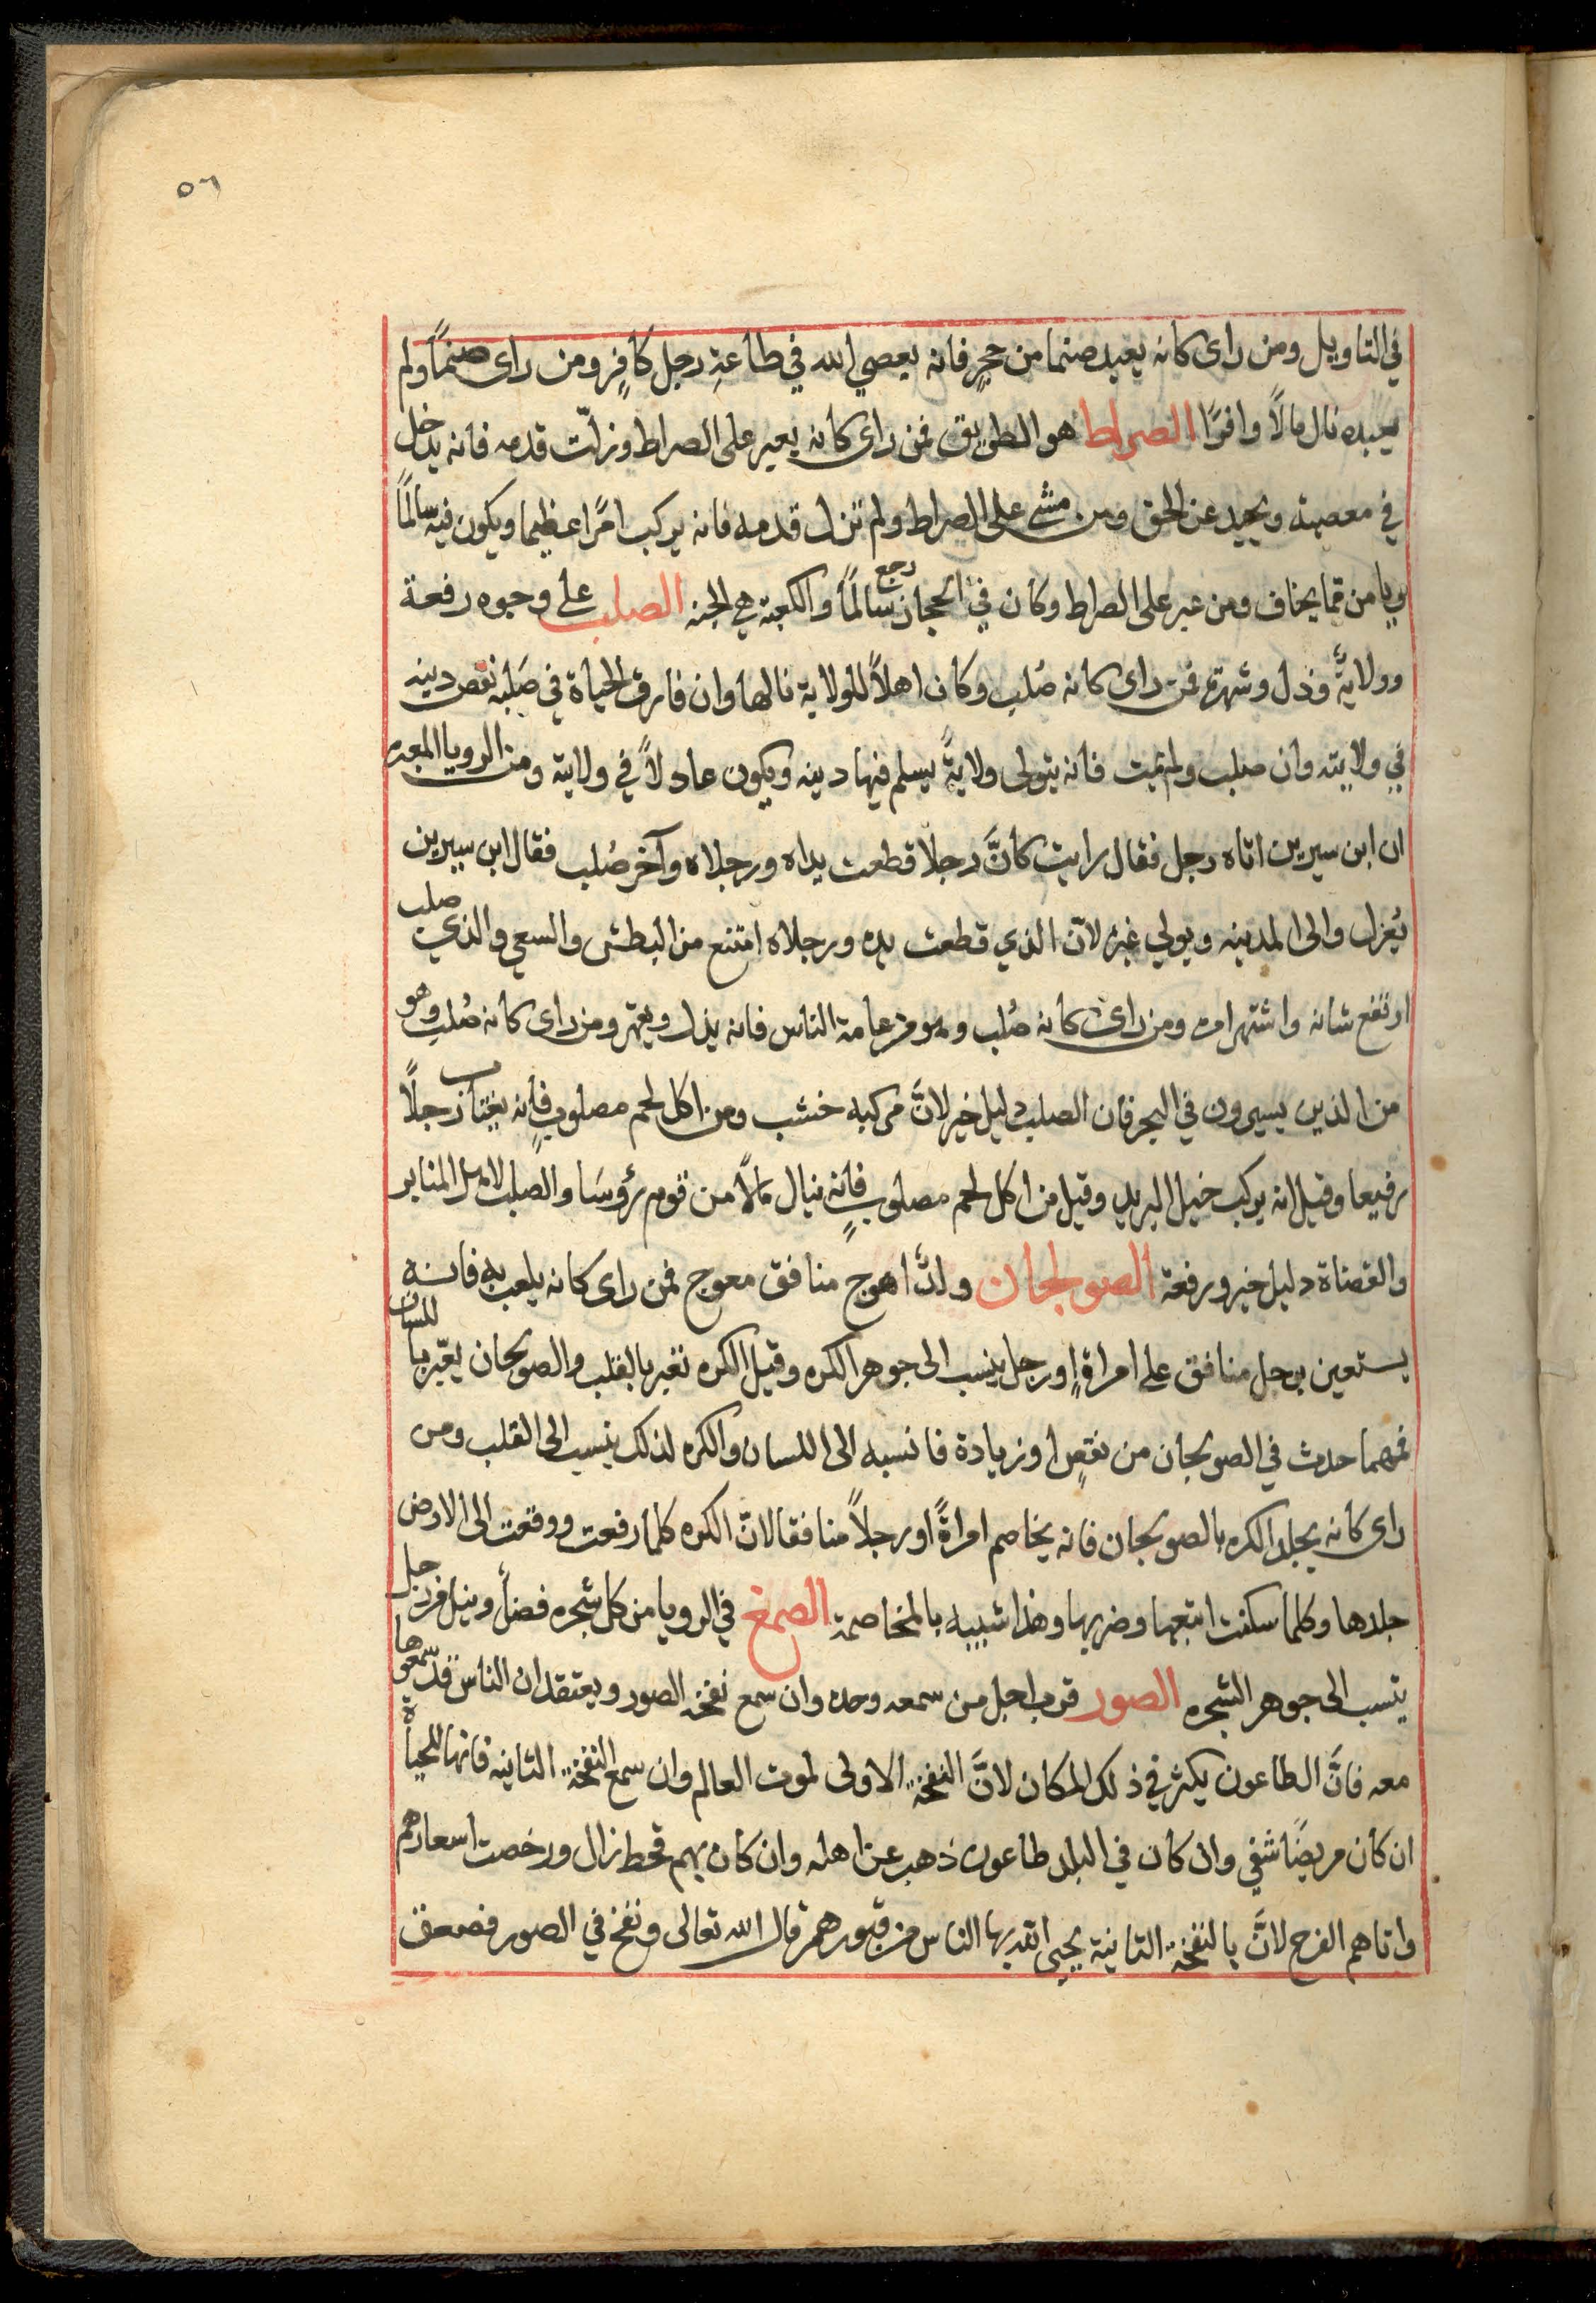 ٥٦
في التاويل ومن راى كانه يعبد صنما من حجرٍ فانه يعصي الله في طاعةِ رجل كافرٍ ومن راى صنمًا ولم
يعبده نال مالًا وافرًا الصراط هو الطريق فمن راى كانه يعبر على الصراط وزلّت قدمه فانه يدخل
في معصية ويحيد عن الحق ومن مشى على الصراط ولم تزل قدمه فانه يركب امرًا عظيما ويكون فيه سالمًا
ويامن مما يخاف ومن عبر على الصراط وكان في الحجاز رجع سالمًا والكعبة هي الجنه الصلب على وجوه رفعة
وولايةٌ وذل وشهرة فمن راى كانه صُلب وكان اهلًا للولاية نالها وان فارق الحياة في صَلبه نقص دينه
في ولايته وان صلب ولم يمت فانه يتولى ولايةً يسلم فيها دينه ويكون عادلًا في ولايته ومن الرويا المعبره
ان ابن سيرين اتاه رجل فقال رايت كانَّ رجلًا قطعت يداه ورجلاه وآخر صُلب فقال ابن سيرين
يُعزل والى المدينه ويولي غيره لانّ الذي قطعت يده ورجلاه امتنع من البطش والسعي والذي صلب
ارتفع شانه واشتهر امره ومن راى كانه صُلب وهو من عامة الناس فانه يذل ويقهر ومن راى كانه صُلب وهو
من الذين يسيرون في البحر فان الصلب دليل خير لانَّ مركبه خشب ومن اكل لحم مصلوبٍ فانه يغتاب رجلًا
رفيعا وقيل انه يركب خيل البريد وقيل من اكل لحم مصلوبٍ فانه ينال مالًا من قوم رؤوسَا والصلب لاهل المنابر
والقضاة دليل خير ورفعة الصولجان ولدٌ اهوج منافق معوج فمن راى كانه يلعب به فانه
يستعين برجل منافق على امراةٍ او رجل ينسب الى جوهر الكره وقيل الكره تعبر بالقلب والصولجان يعبّر باللسان
فمهما حدث في الصولجان من نقصٍ او زيادة فانسبه الى اللسان والكره لذلك ينسب الى القلب ومن
راى كانه يجلد الكره بالصولجان فانه يخاصم امراةً او رجلًا منافقا لانّ الكره كلما رفعت ووقعت الى الارض
جلدها وكلما سكنت اتبعها وضربها وهذا شبيه بالمخاصمة الصمغ في الرويا من كل شجره فضلٌ ونيل من رجل
ينسب الى جوهر الشجره الصور قرب اجل من سمعه وحده وان سمع نفخه الصور ويعتقد ان الناس قد سمعوها
معه فانَّ الطاعون يكثر في ذلك المكان لانَّ النفخة الاولى لموت العالم وان سمع النفخة الثانيه فانها للحياة
ان كان مريضًا شفي وان كان في البلد طاعون ذهب عن اهله وان كان بهم قحط زال ورخصت اسعارهم
واتاهم الفرج لانَّ بالنفخة الثانية يحيي الله بها الناس من قبورهم قال الله تعالى ونفخ في الصور فصعق